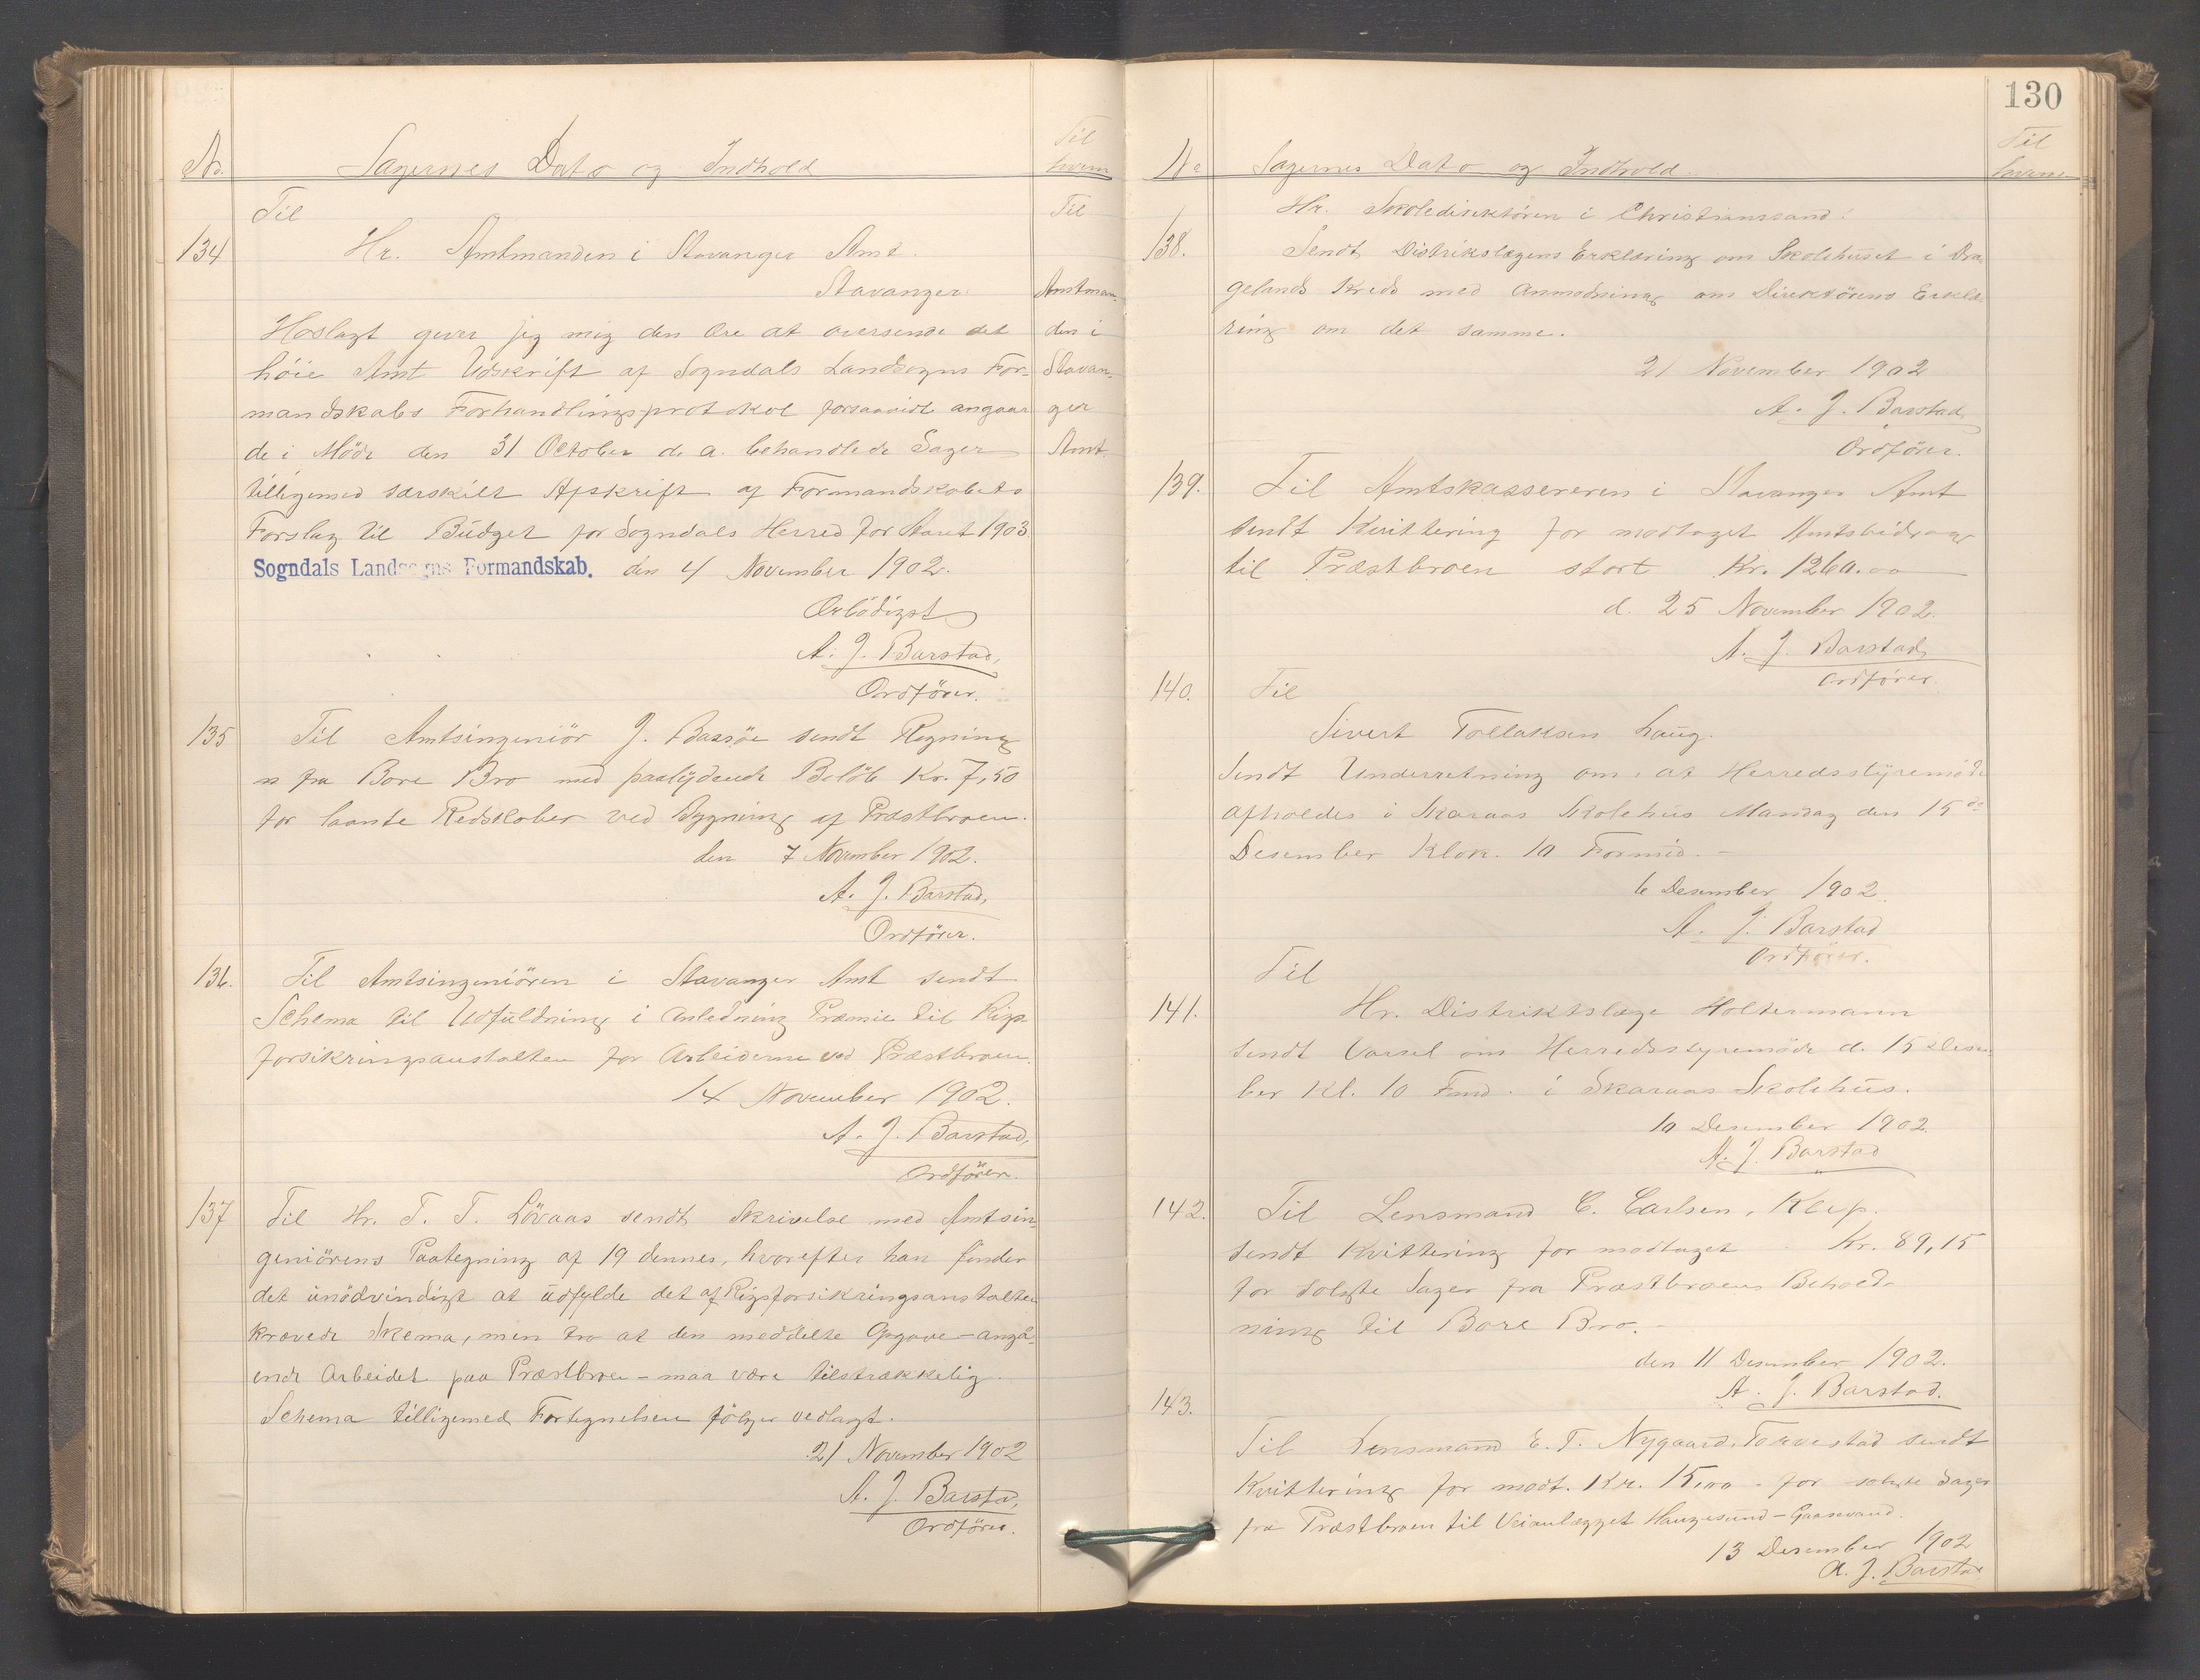 No. Sagernes Dato og Indhold Til hvem
Til Til
134 Hr. Amtmanden i Stavanger Amt.
Stavanger. Amtman-
Hoslagt giver jeg mig den Ære at oversende det den i
höie Amt Udskrift af Sogndals Landsogns For- Stavan-
mandskabs Forhandlingsprotokol forsaavidt angaar ger
de i Möde den 31 October d. a. behandlede Sager Amt.
tilligemed særskilt Afskrift af Formandskabets
Forslag til Büdget for Sogndals Herred for Aaret 1903
Sogndals Landsogns Formandskab. den 4 November 1902.
Ærbödigst
A. J. Barstad,
Ordförer.
135 Til Amtsingeniör J. Bassöe sendt Regning
n fra Bore Bro med paalÿdende Belöb Kr. 7,50
for laante Redskaber ved Bygning af Præstbroen.
den 7 November 1902.
A. J. Barstad,
Ordförer.
136. Til Amtsingeniören i Stavanger Amt sendt
Schema til Udfüldning i Anledning Præmie til Rigs
forsikringsanstalten for Arbeiderne ved Præstbroen.
14 November 1902.
A. J. Barstad,
Ordförer.
137 Til Hr. T. T. Lövaas sendt Skrivelse med Amtsin-
geniörens Paategning af 19 dennes, hvorefter han finder
det ünödvindigt at üdfylde det af Rigsforsikringsanstalten
krævede Skema, men tro at den meddelte Opgave – angå-
ende Arbeidet paa Præstbroen – maa være tilstrækkelig.
Schema tilligemed Fortegnelsen fölger vedlagt.
21 November 1902
A. J. Barstad,
Ordförer.
130
No Sagernes Dato og Indhold Til hvem
Hr. Skoledirektören i Christianssand.
138. Sendt Distrikslægens Erklæring om Skolehuset i Dra-
gelands Kreds med Anmodning om Direktörens Erklæ-
ring om det samme.
21 November 1902
A. J. Barstad,
Ordförer.
139. Til Amtskassereren i Stavanger Amt
sendt Kvittering for modtaget Amtsbidrag
til Præstbroen stort Kr. 1260.00
d. 25 November 1902.
A. J. Barstad,
Ordförer.
140. Til
Sivert Tollaksen Haüg.
Sendt Underretning om, at Herredsstÿremöde
afholdes i Skaraas Skolehüs Mandag den 15de
Desember Klok. 10 Formid. –
6 Desember 1902.
A. J. Barstad
Ordförer.
Til
141. Hr. Distriktslæge Holtermann
sendt Varsel om Herredsstyremöde d. 15 Desem-
ber Kl. 10 Fmd. i Skaraas Skolehüs.
10 Desember 1902.
A. J. Barstad
142. Til Lensmand C. Carlsen, Klep.
sendt Kvittering for modtaget Kr. 89,15
for solgte Sager fra Præstbroens Behold-
ning til Bore Bro. –
den 11 Desember 1902.
A. J. Barstad.
143.
Til Lensmand E. T. Nygaard, Torvestad sendt
Kvittering for modt. Kr. 15,00 – for solgte Sager
fra Præstbroen til Veianlægget Haugesund – Gaasevand.
13 Desember 1902
A. J. Barstad